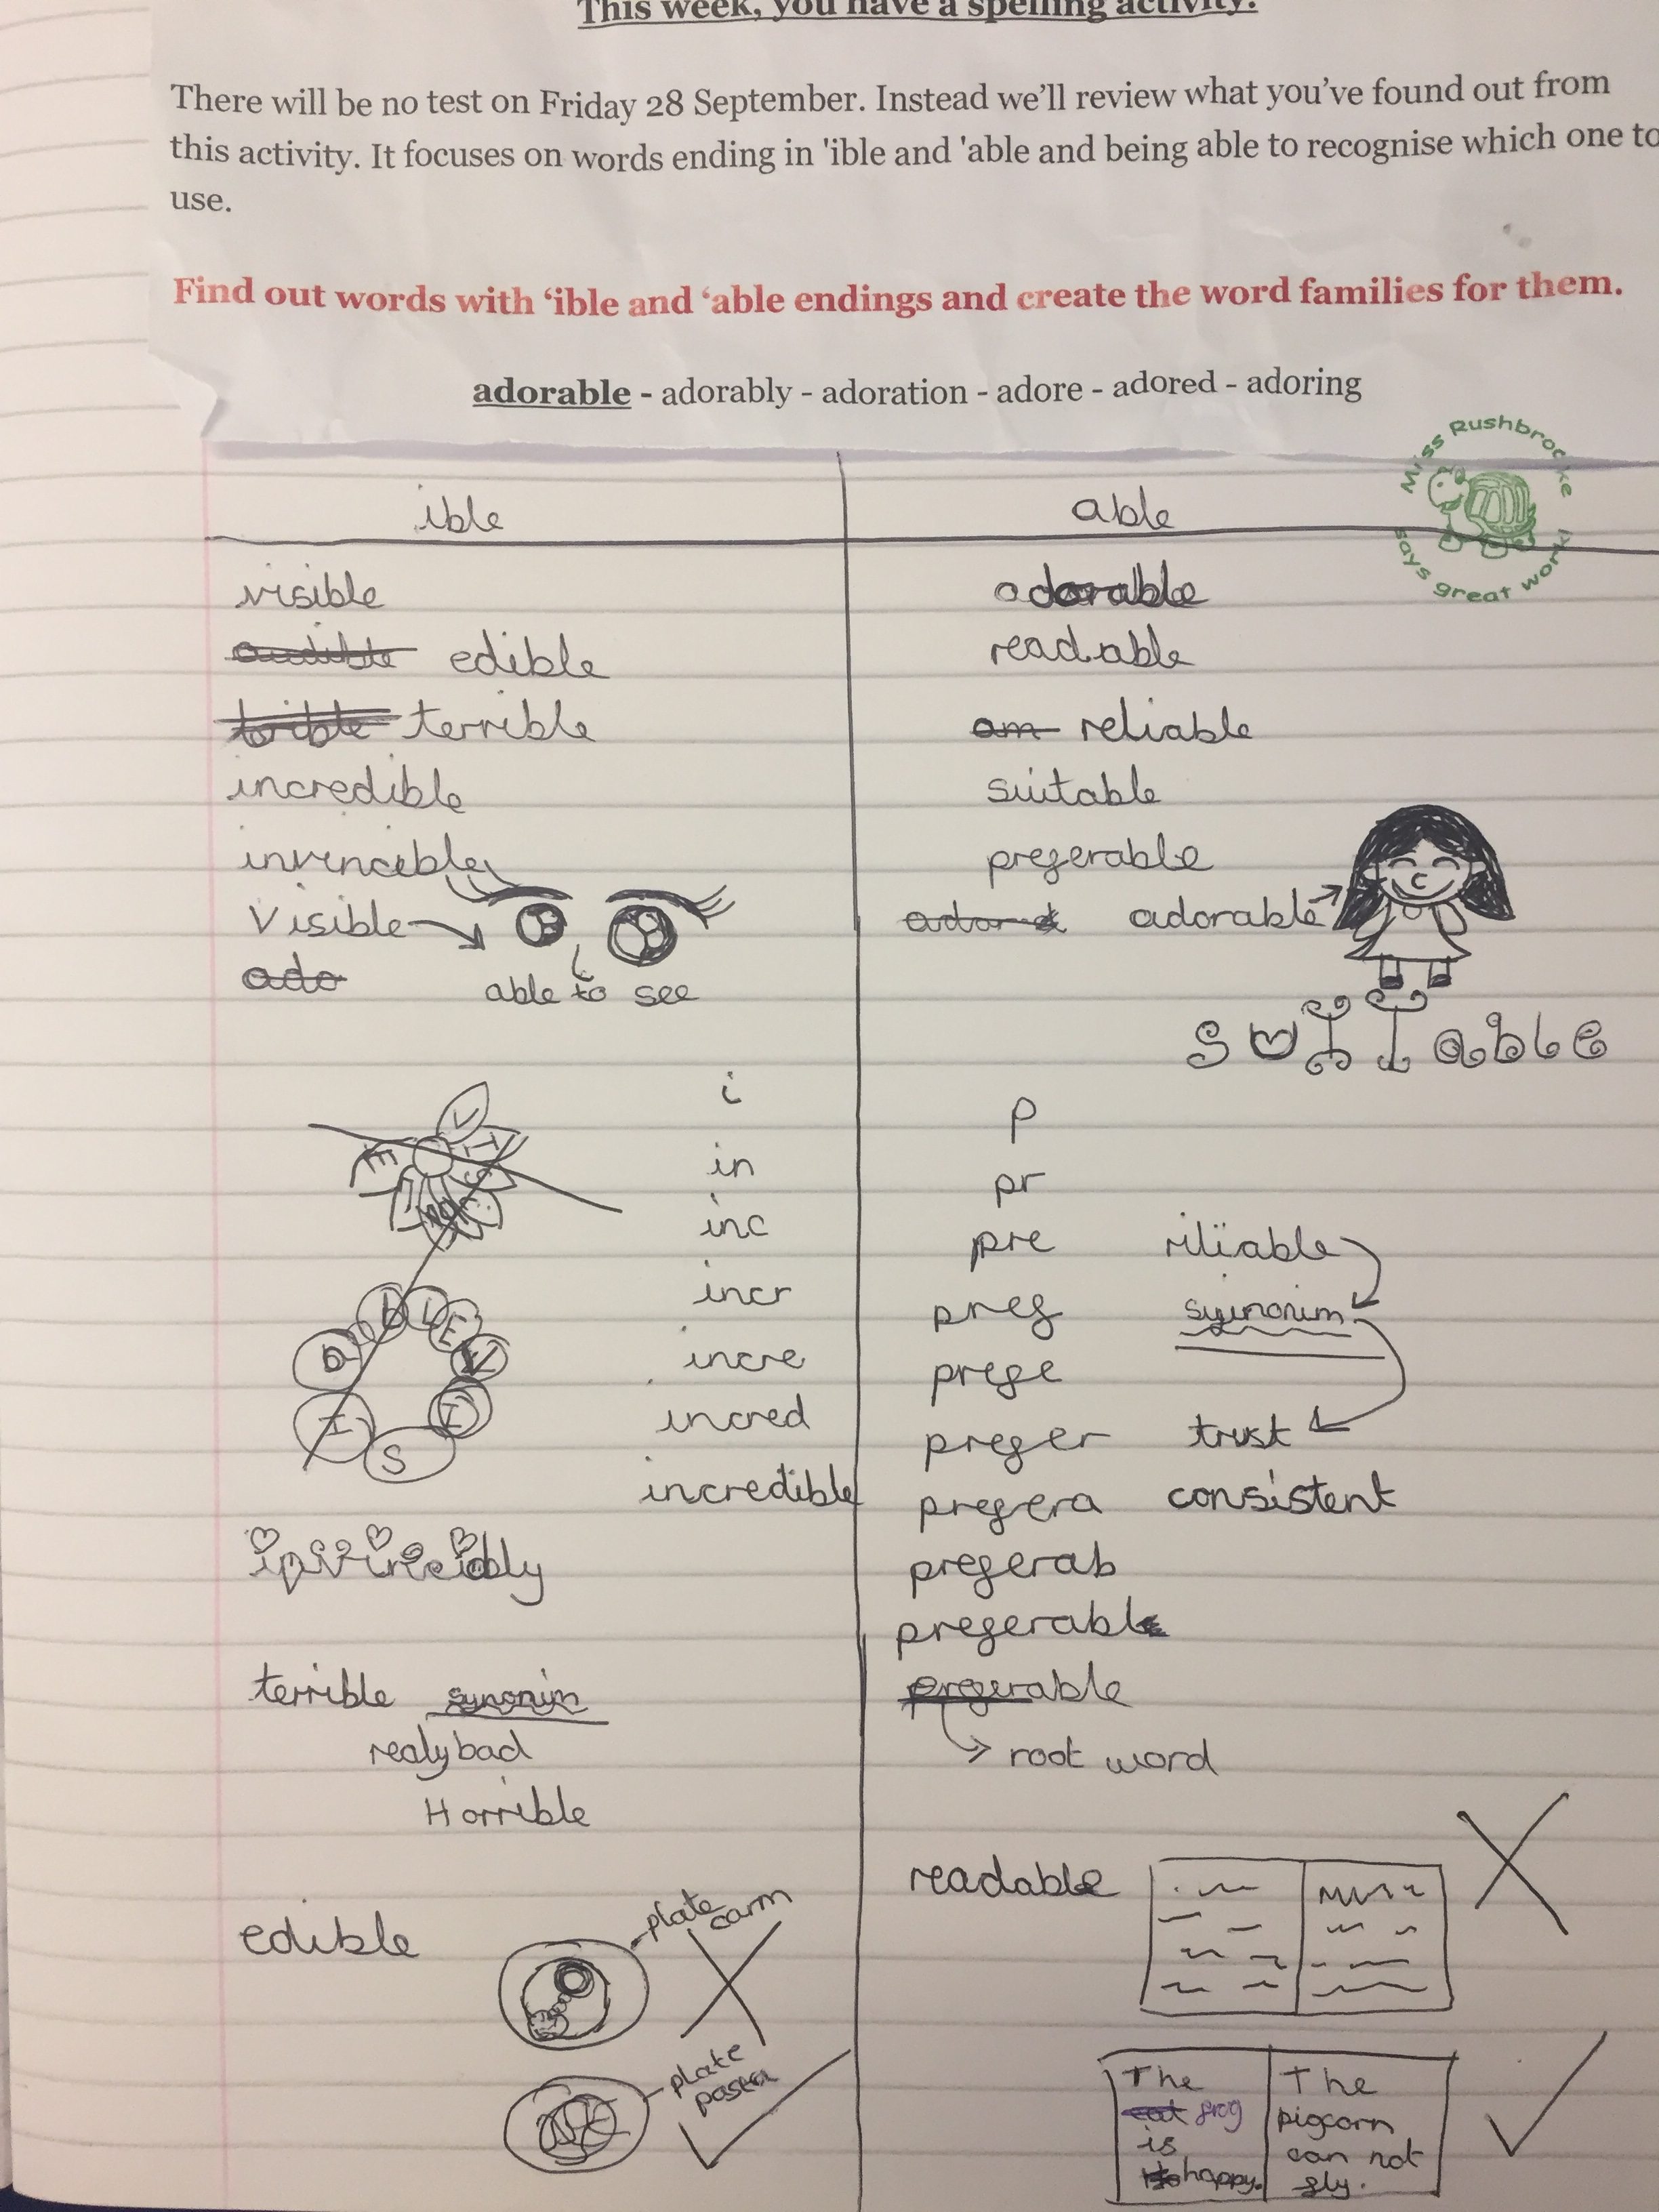 This week, you have a spelling activity.
There will be no test on Friday 28 September. Instead we'll review what you've found out from
this activity. It focuses on words ending in 'ible and 'able and being able to recognise which one to
use.
Find out words with 'ible and 'able endings and create the word families for them.
adorable - adorably - adoration - adore - adored - adoring
Miss Rushbrooke
says great work!
ible
visible
audible edible
terible terrible
incredible
invincible
Visible
ado
able to see
i
in
inc
incr
incre
incred
incredible
terrible synonim
realy bad
Horrible
edible
plate
plate
pasta
able
adorable
readable
am reliable
suitable
preferable
adorable
suitable
p
pr
pre
pref
prefe
prefer
prefera
preferab
preferable
preferable
root word
riliable
syinonim
trust
consistent
readable
The
cat frog
is
happy.
The
pigcorn
can not
fly.